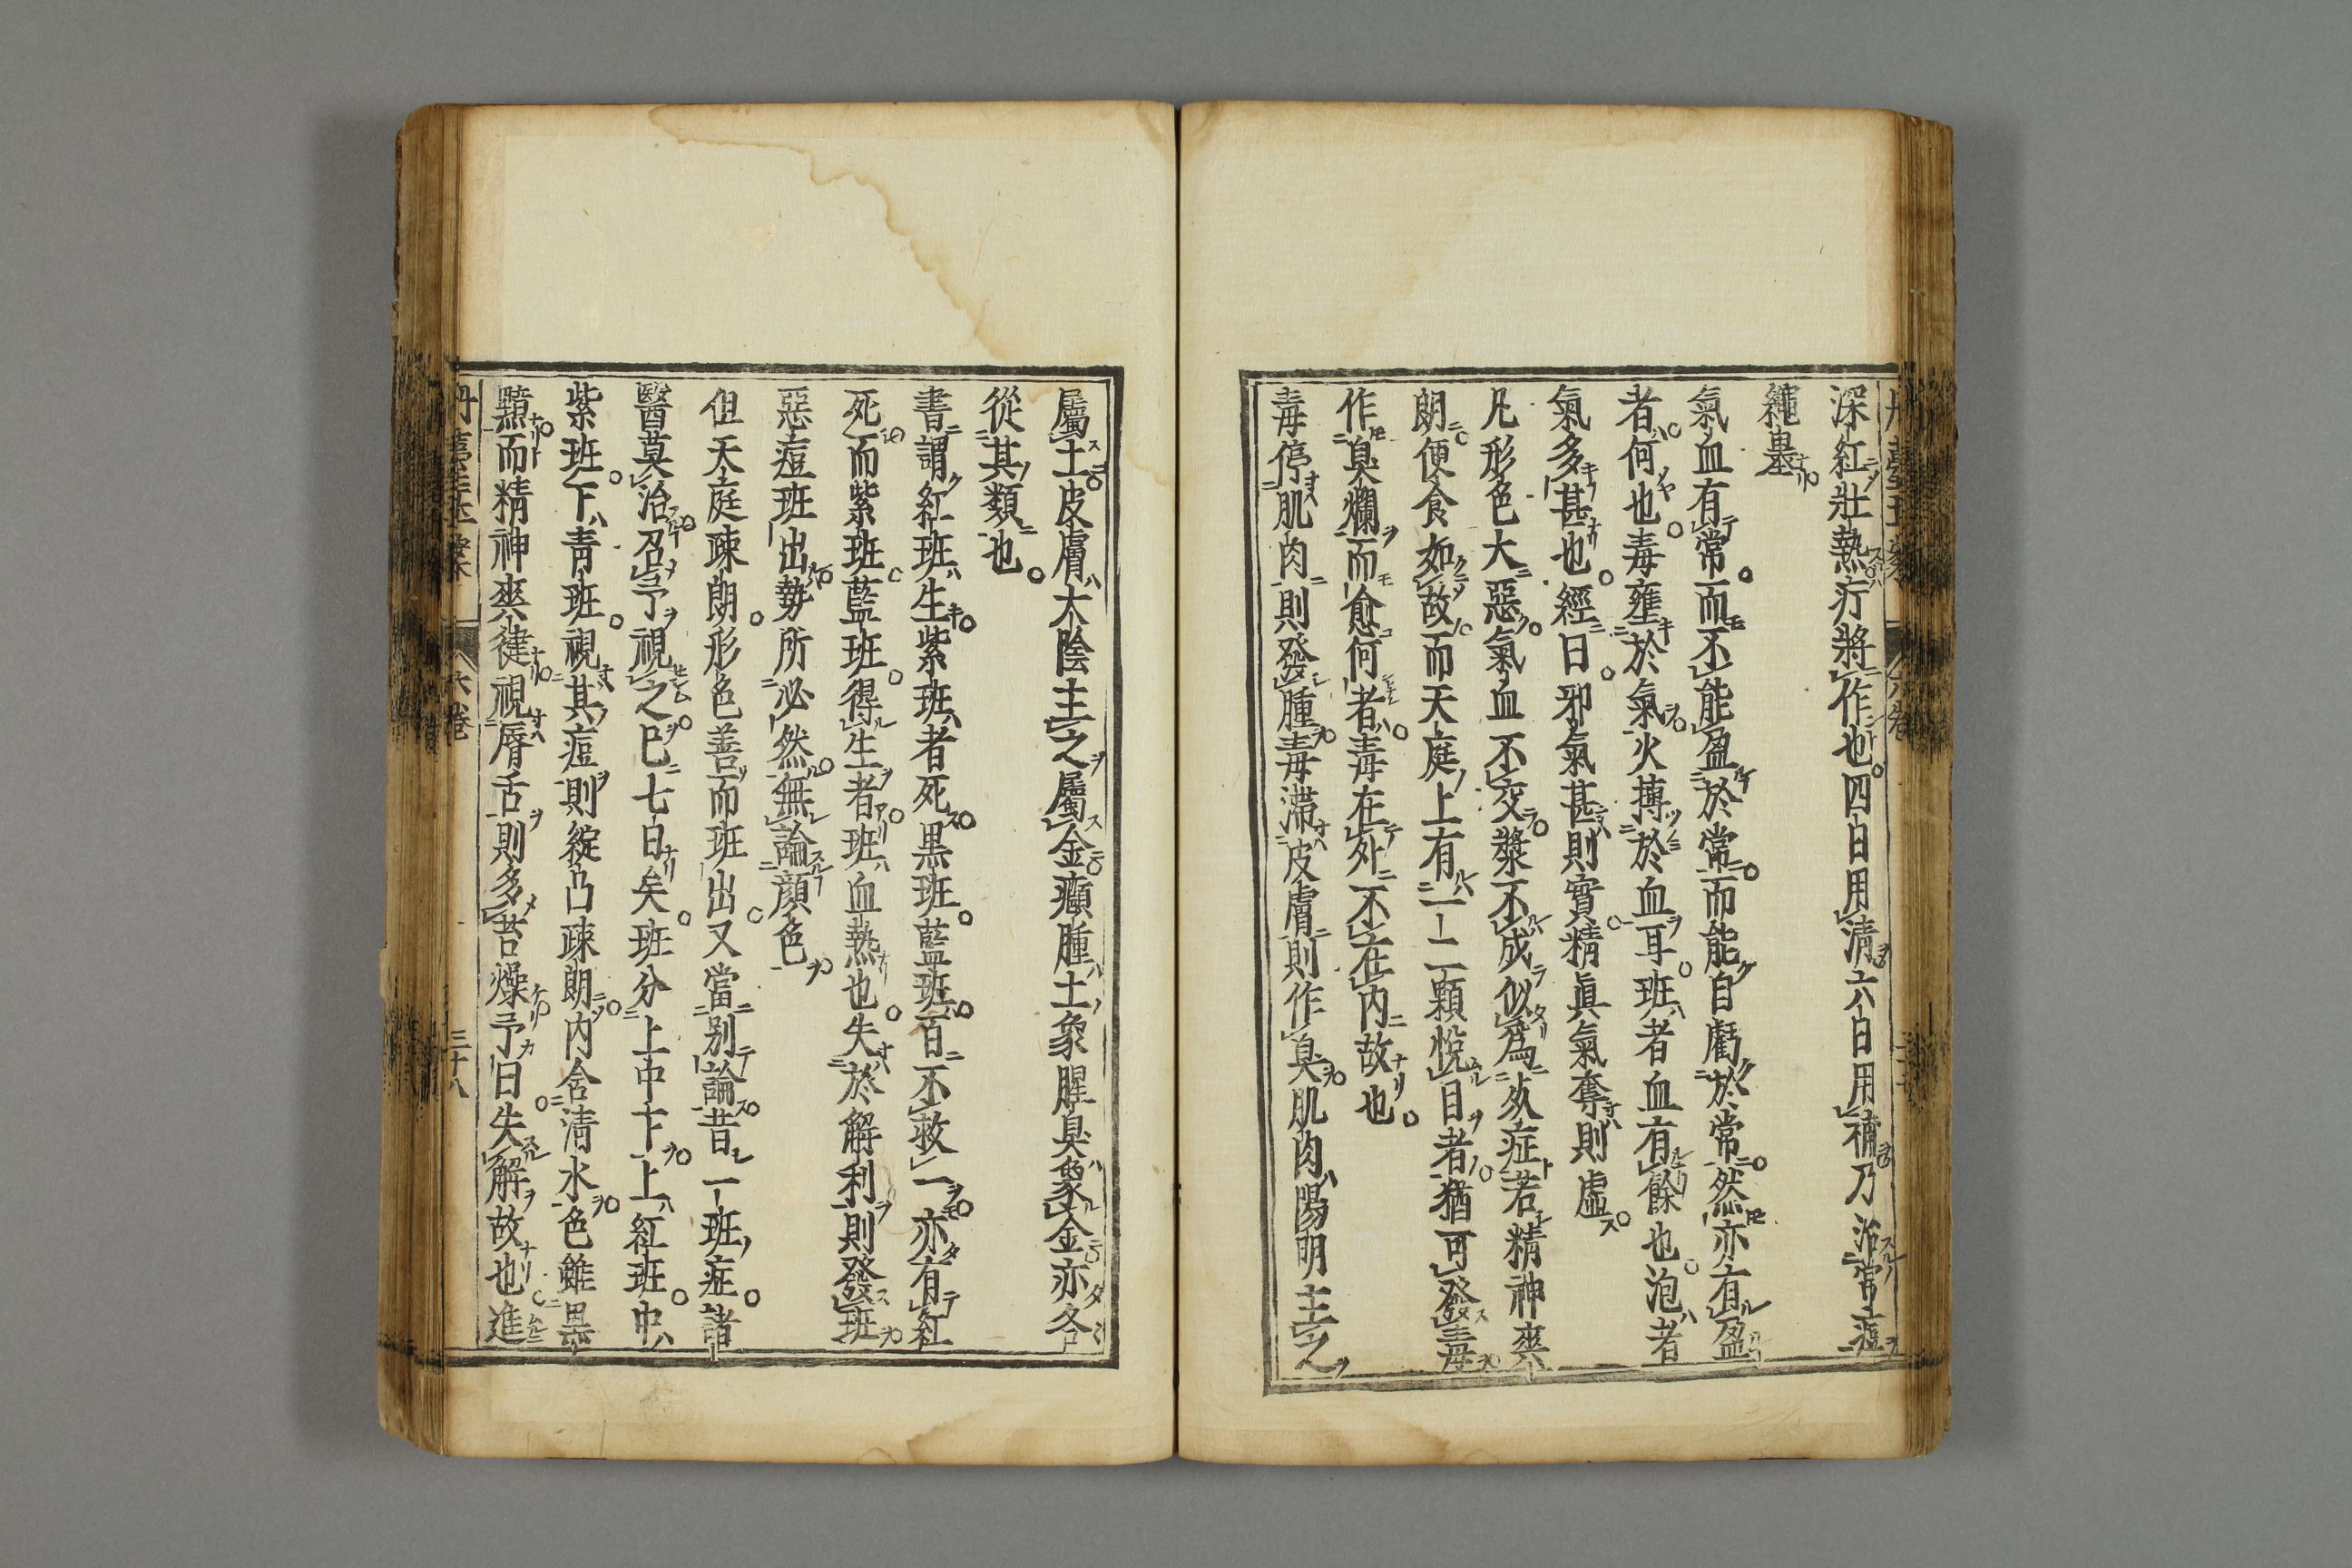 深紅壯熱疔將作也四日用清六日用補乃治常痘
繩墨
氣血有常而不能盈於常而能自虧於常然亦有盈
者何也毒壅於氣火搏於血耳班者血有餘也泡者
氣多甚也經曰邪氣甚則實精眞氣奪則虛
凡形色大惡氣血不交漿不成似爲必症若精神爽
朗便食如故而天庭上有一二顆悅目者猶可發毒
作臭爛而愈何者毒在外不在内故也
毒停肌肉則發腫毒滞皮膚則作臭肌肉陽明主之
屬土皮膚太陰主之屬金癰腫土象腥臭象金亦各
從其類也
書謂紅班生紫班者死黒班藍班百不救一亦有紅
死而紫班藍班得生者班血熱也失於解利則發班
惡痘班出勢所必然無論顔色
但天庭疎朗形色善而班出又當別論昔一班症諸
醫莫治召予視之已七日矣班分上中下上紅班中
紫班下青班視其痘則綻凸疎朗内含清水色雖黒
黯而精神爽健視脣舌則多苔燥予曰失解故也進
六卷
三十八